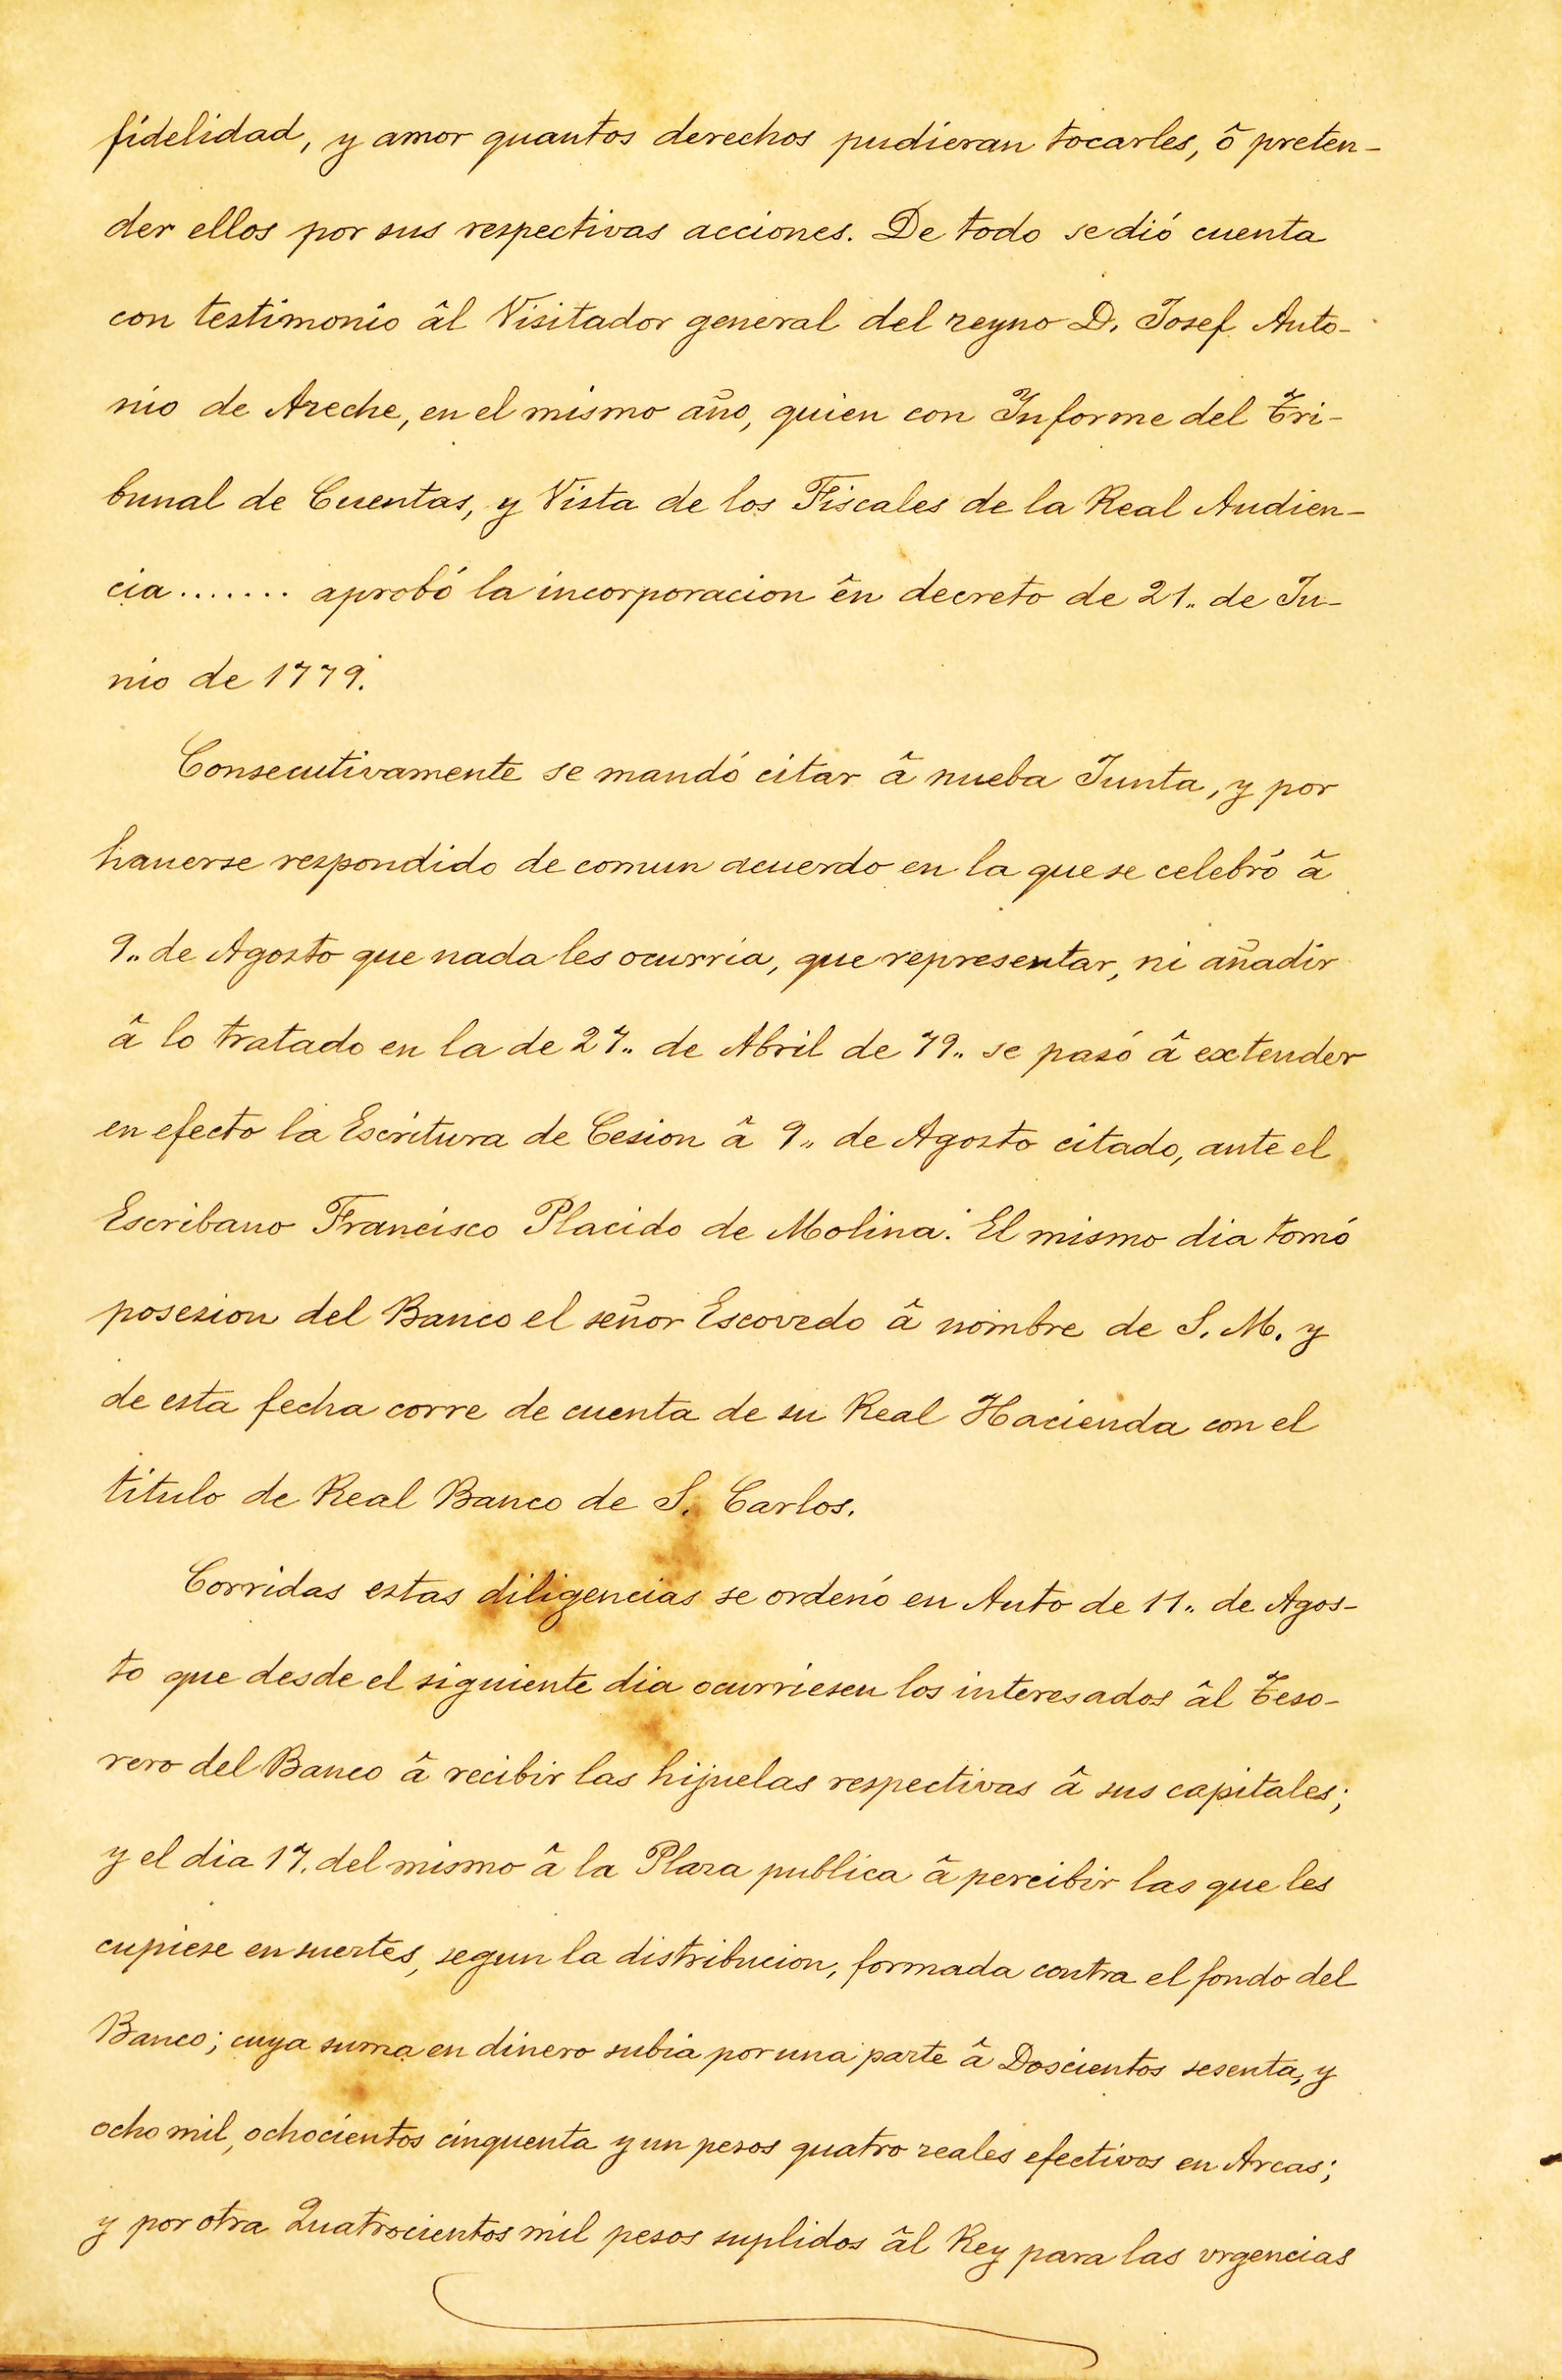 fidelidad, y amor quantos derechos pudieran tocarles, ô preten-
der ellos por sus respectivas acciones. De todo se dió cuenta
con testimonio âl Visitador general del reyno D. Josef Anto-
nio de Areche, en el mismo año, quien con Informe del Tri-
bunal de Cuentas, y Vista de los Fiscales de la Real Audien-
cia ....... aprobó la incorporacion ên decreto de 21.. de Ju-
nio de 1779.
Consecutivamente se mandó citar â nueba Junta, y por
hauerse respondido de comun acuerdo en la que se celebró â
9.. de Agosto que nada les ocurria, que representar, ni añadir
â lo tratado en la de 27.. de Abril de 79.. se pasó â extender
en efecto la Escritura de Cesion â 9.. de Agosto citado, ante el
Escribano Francisco Placido de Molina. El mismo dia tomó
posesion del Banco el señor Escovedo â nombre de S. M. y
de esta fecha corre de cuenta de su Real Hacienda con el
titulo de Real Banco de S. Carlos.
Corridas estas diligencias se ordenó en Auto de 11.. de Agos-
to que desde el siguiente dia ocurriesen los interesados âl Teso-
rero del Banco â recibir las hijuelas respectivas â sus capitales;
y el dia 17. del mismo â la Plaza publica â percibir las que les
cupiese en suertes, segun la distribucion, formada contra el fondo del
Banco; cuya suma en dinero subia por una parte â Doscientos sesenta, y
ocho mil, ochocientos cinquenta y un pesos quatro reales efectivos en Arcas;
y por otra Quatrocientos mil pesos suplidos âl Rey para las vrgencias